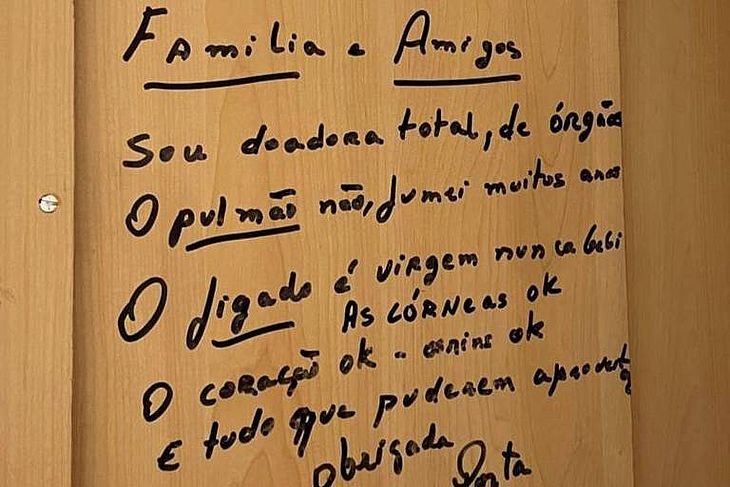 Familia e Amigos
Sou doadora total, de órgãos
O pulmão não, fumei muitos anos
O figado é virgem nunca bebi
As córneas ok
O coração ok - ok
E tudo que puderem aproveit
Obrigada